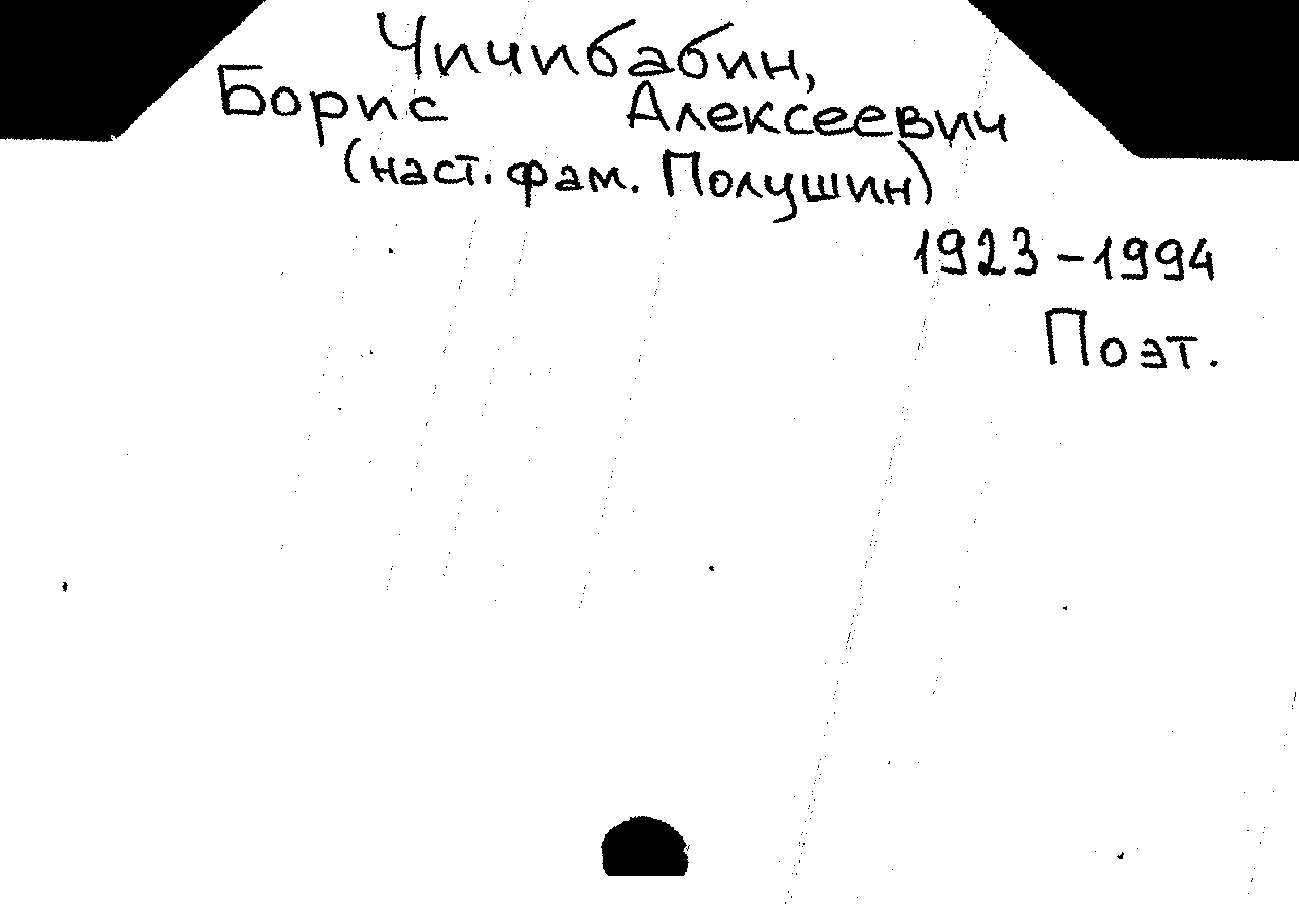 Чичибабин,
Борис Алексеевич
(наст. фам. Полушин)
1923-1994
Поэт.